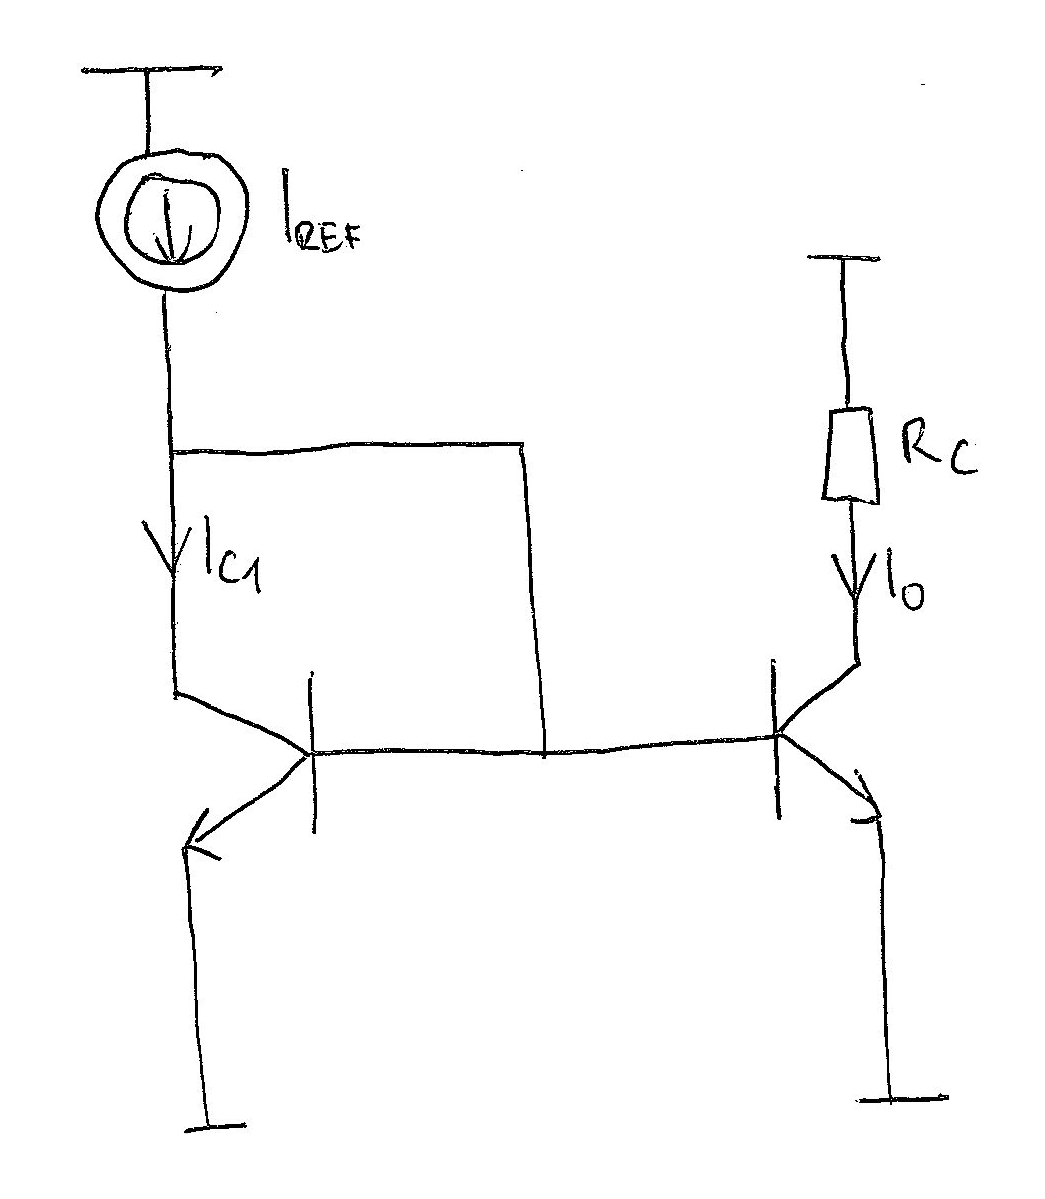 I_REF
R_C
I_C1
I_O